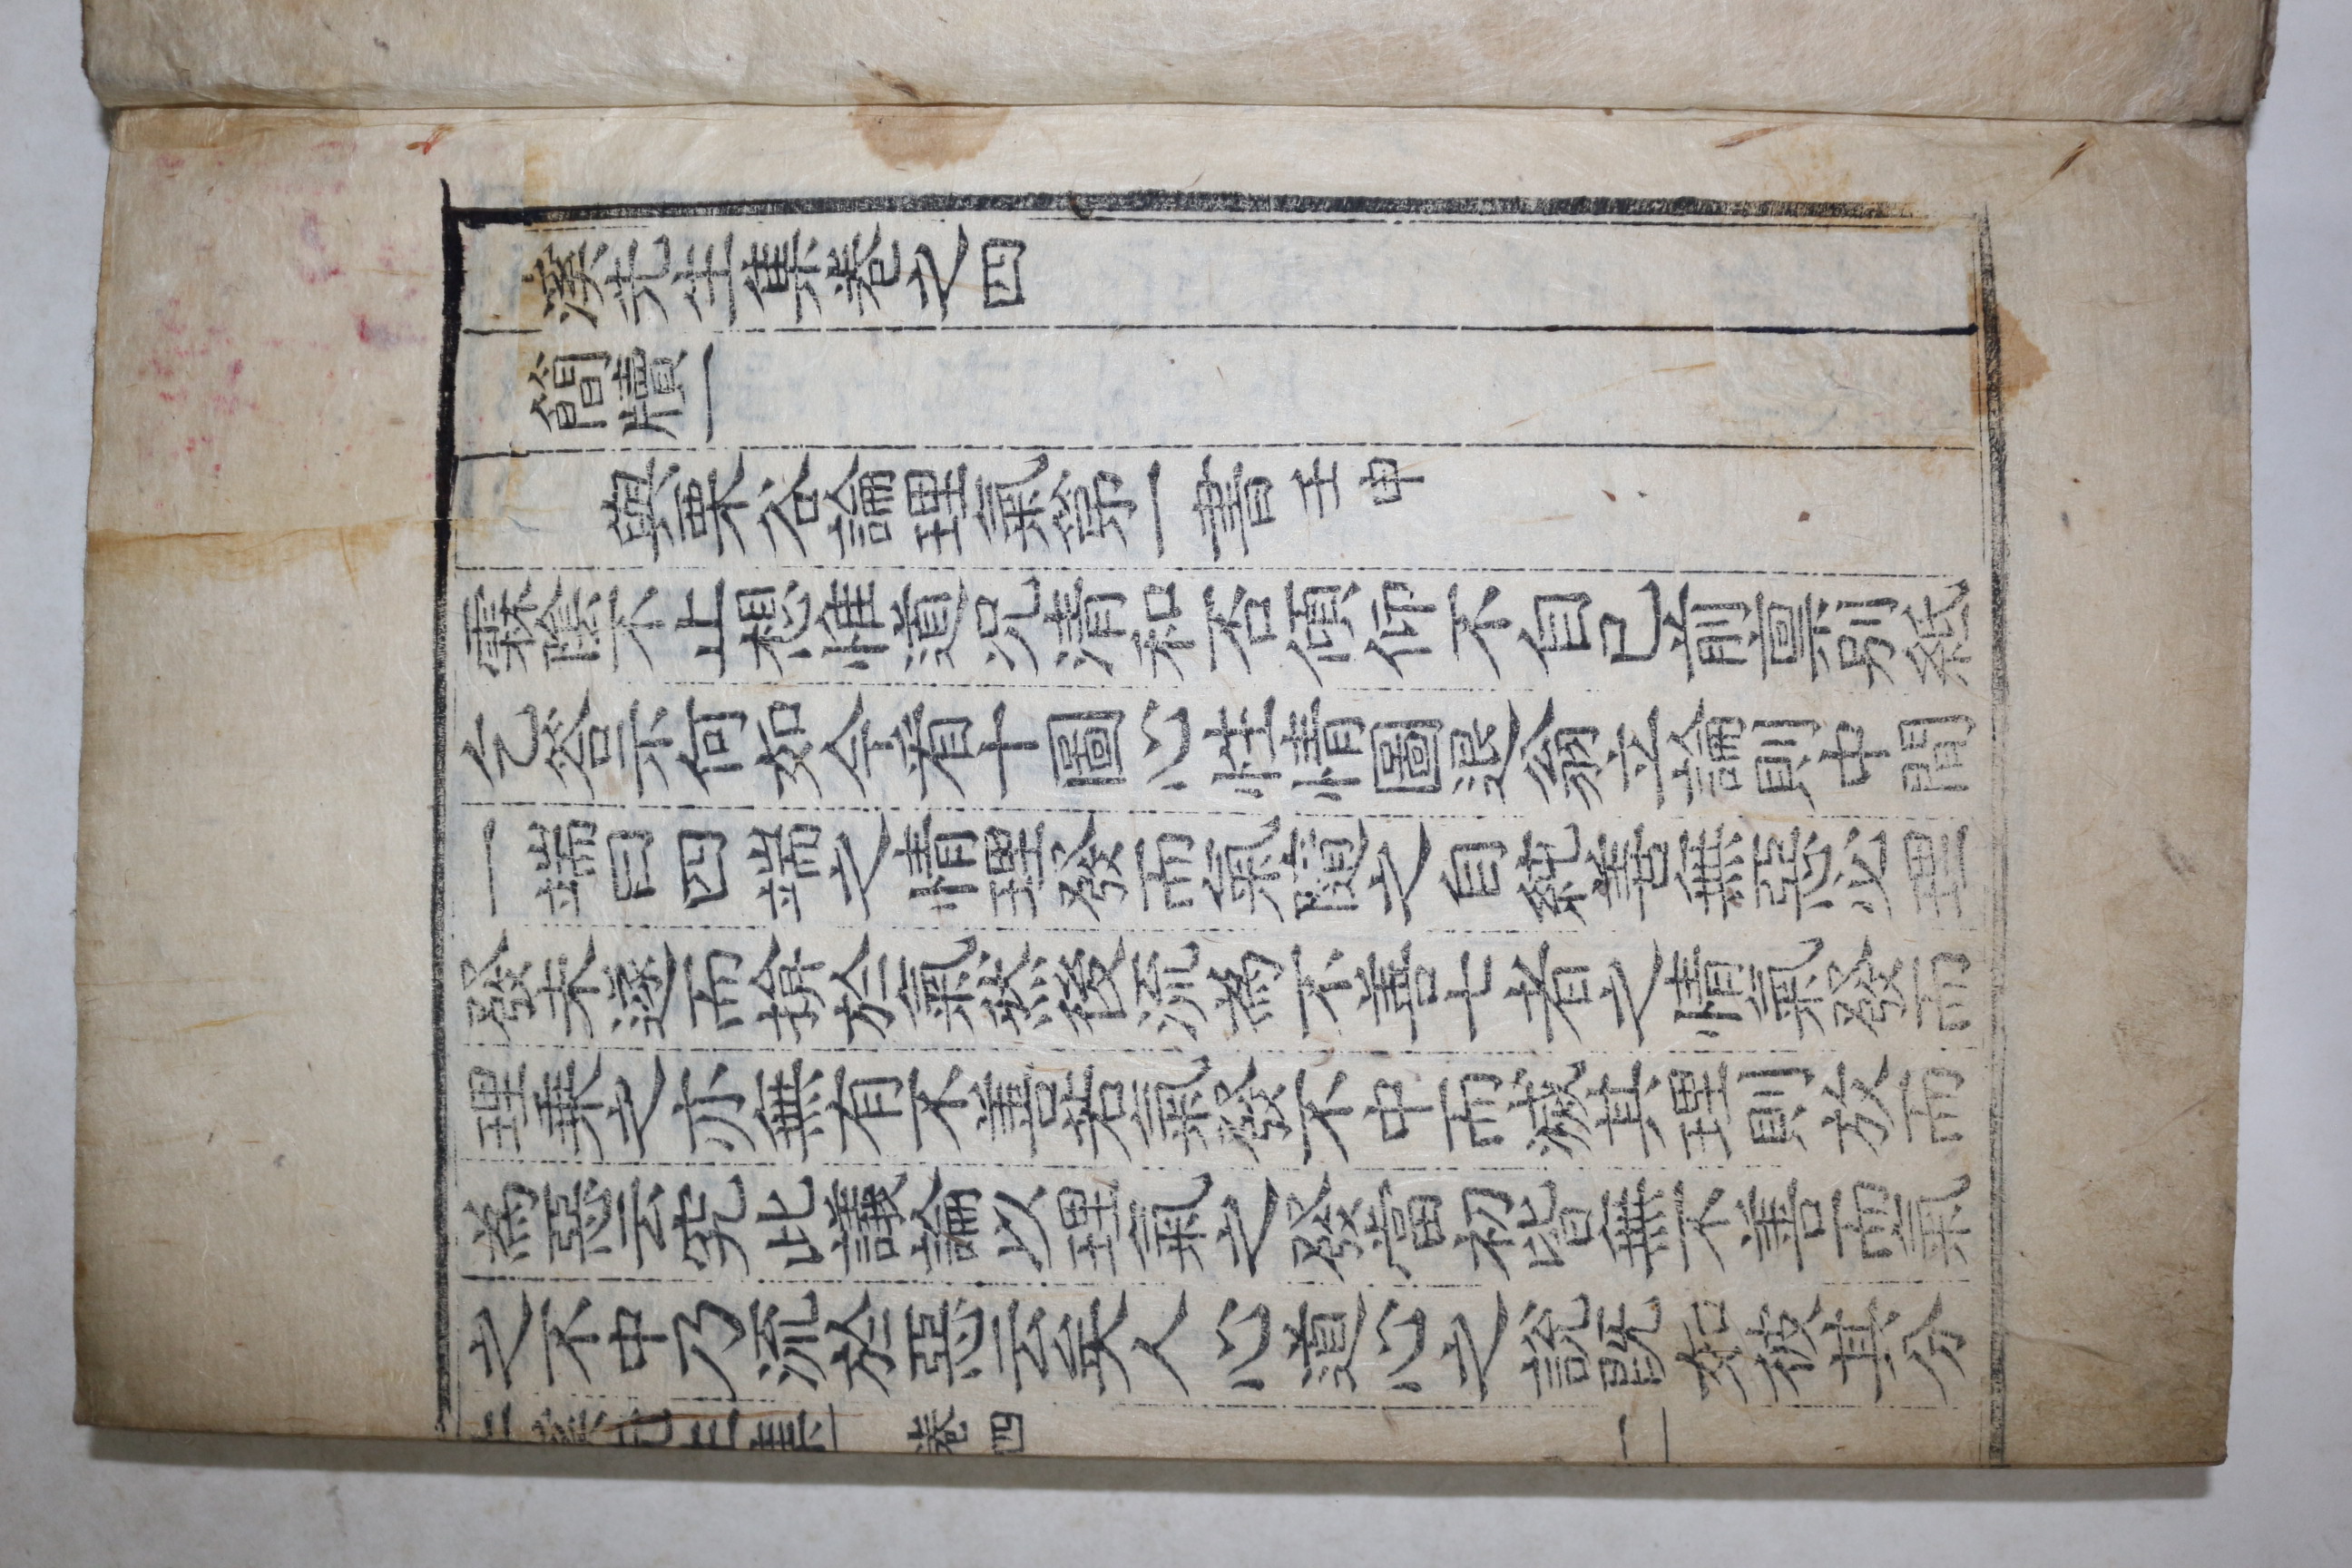 溪先生集卷之四
簡牘一
與栗谷論理氣第一書 壬申
霖陰不止想惟道況清和否傾仰不自已前禀別紙
乞答示何如今看十圖心性情圖退翁立論則中間
一端曰四端之情理發而氣隨之自純善無惡必理
發未遂而揜於氣然後流為不善七者之情氣發而
理乘之亦無有不善若氣發不中而滅其理則放而
為惡云究此議論以理氣之發當初皆無不善而氣
之不中乃流於惡云矣人心道心之說既如彼其分
溪先生集 卷四 一